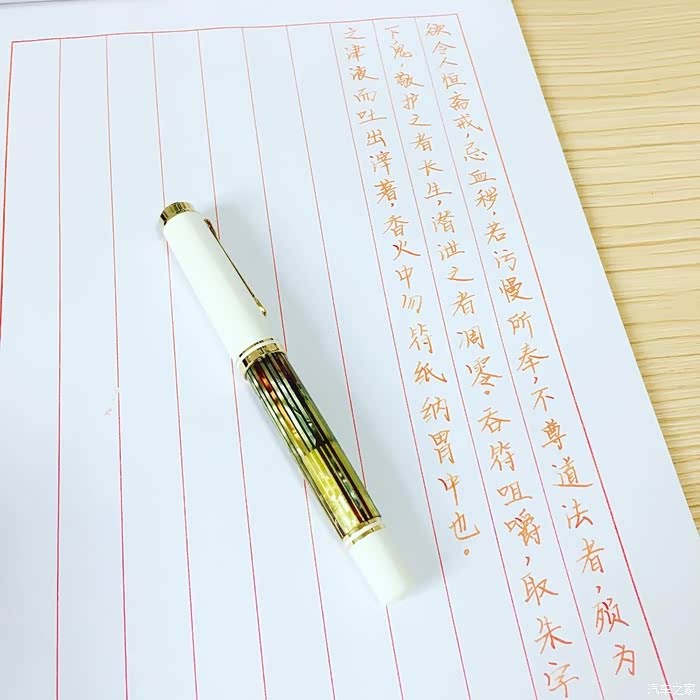 欲令人恒斋戒，忌血秽，若污慢所奉，不尊道法者，殒为
下鬼，敬护之者长生，潜泄之者凋零。吞符咀嚼，取朱字
之津液而吐出滓著，香火中勿符纸纳胃中也。
汽车之家